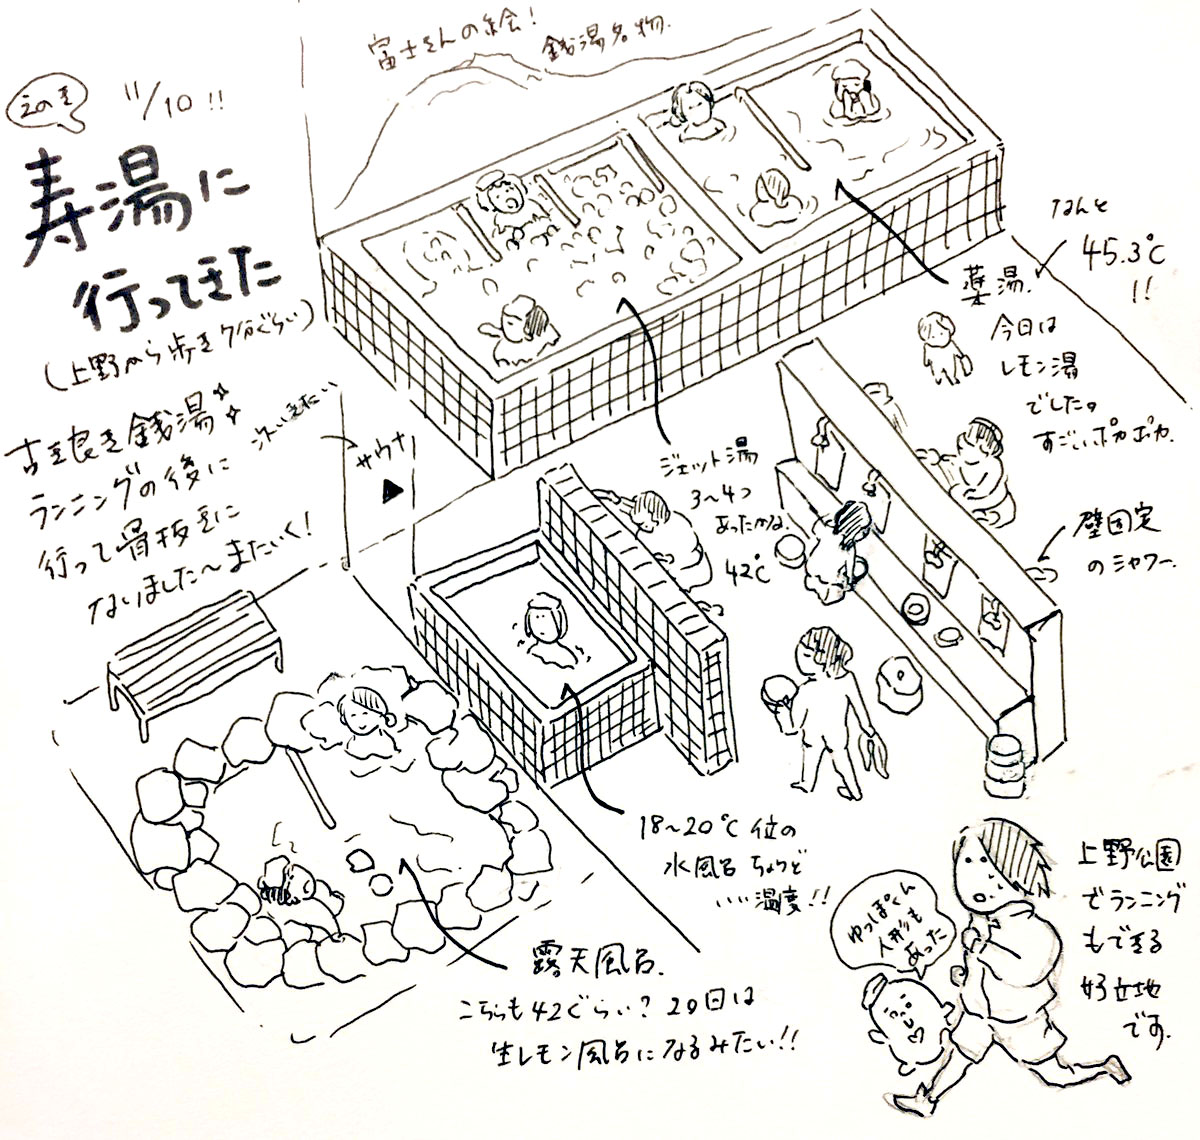 富士さんの絵!
銭湯名物.
えのき
11/10!!
寿湯に
行ってきた
(上野から歩き7分ぐらい)
古き良き銭湯
ランニングの後に
行って骨抜きに
なりました〜またいく!
次いきたい
サウナ
なんと
45.3℃
!!
薬湯.
今日は
レモン湯
でした。
すごいポカポカ.
ジェット湯
3〜4つ
あったかな.
42℃
壁固定
のシャワー.
18〜20℃位の
水風呂 ちょうど
いい温度!!
露天風呂.
こちらも42ぐらい? 29日は
生レモン風呂になるみたい!!
ゆっぽくん
人形も
あった
上野公園
でランニング
もできる
好立地
です.